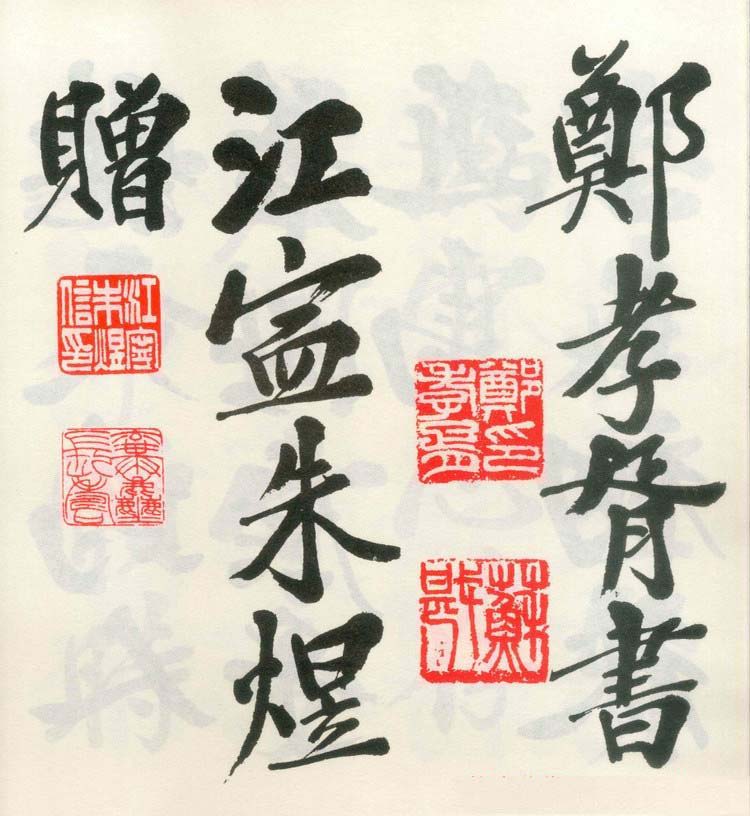 鄭孝胥書
鄭印孝胥
蘇戡
江寍朱煜
贈
江寧朱煜信印